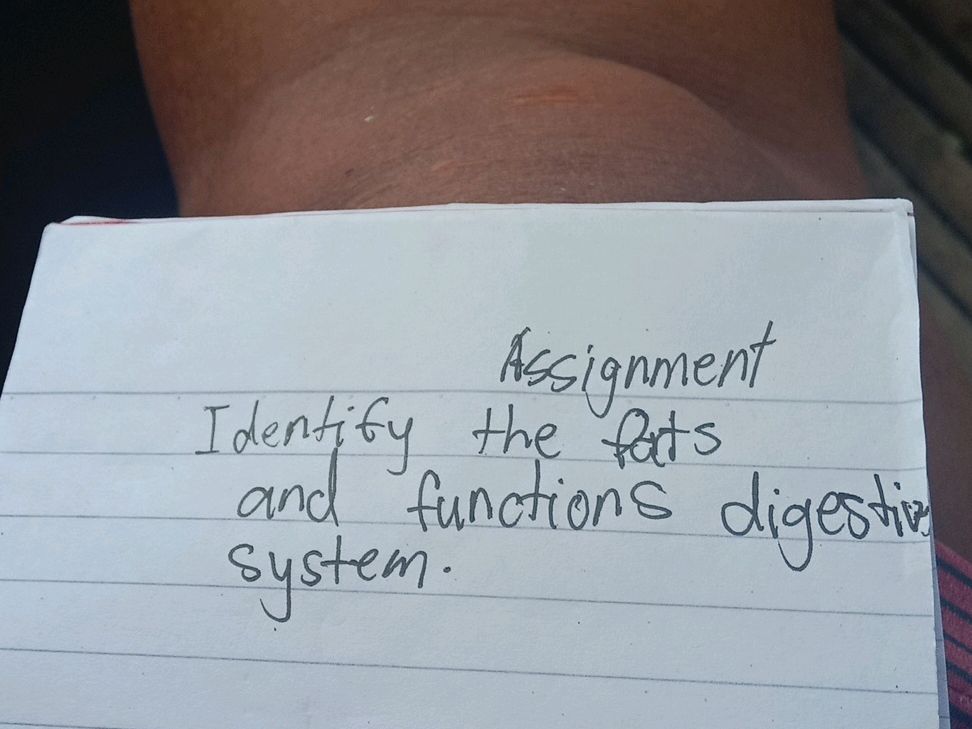 Assignment
Identify the parts
and functions digestive
system.